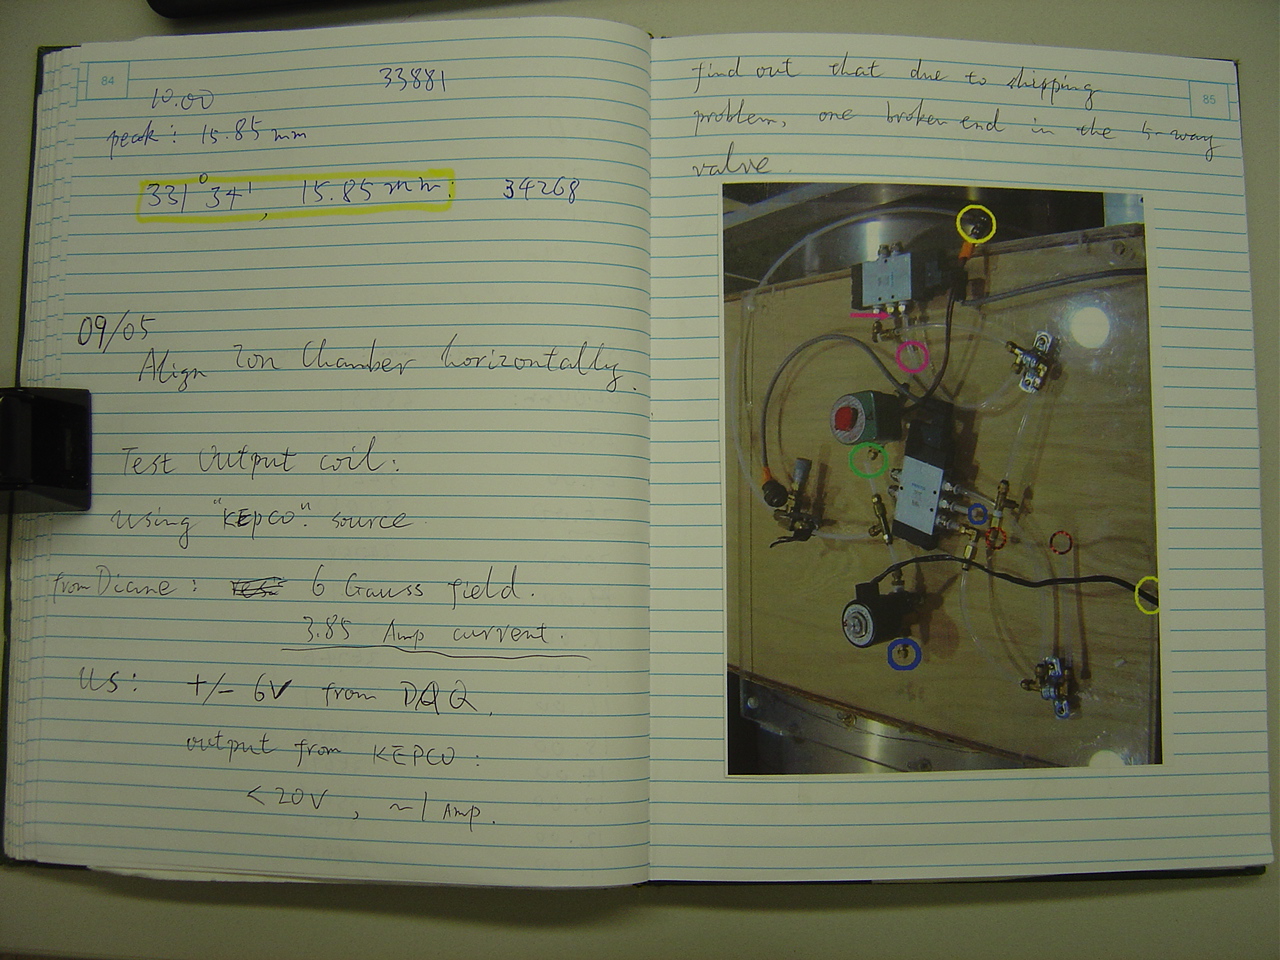 84
33881
10.00
peak: 15.85 mm
331° 34', 15.85 mm: 34268
09/05
Align Ion Chamber horizontally.
Test Output coil:
using "KEPCO" source
from Diane: 6 Gauss field.
3.85 Amp current.
us: +/- 6V from DAQ,
output from KEPCO:
<20V, ~1 Amp.
85
find out that due to shipping
problem, one broken end in the 5-way
valve.